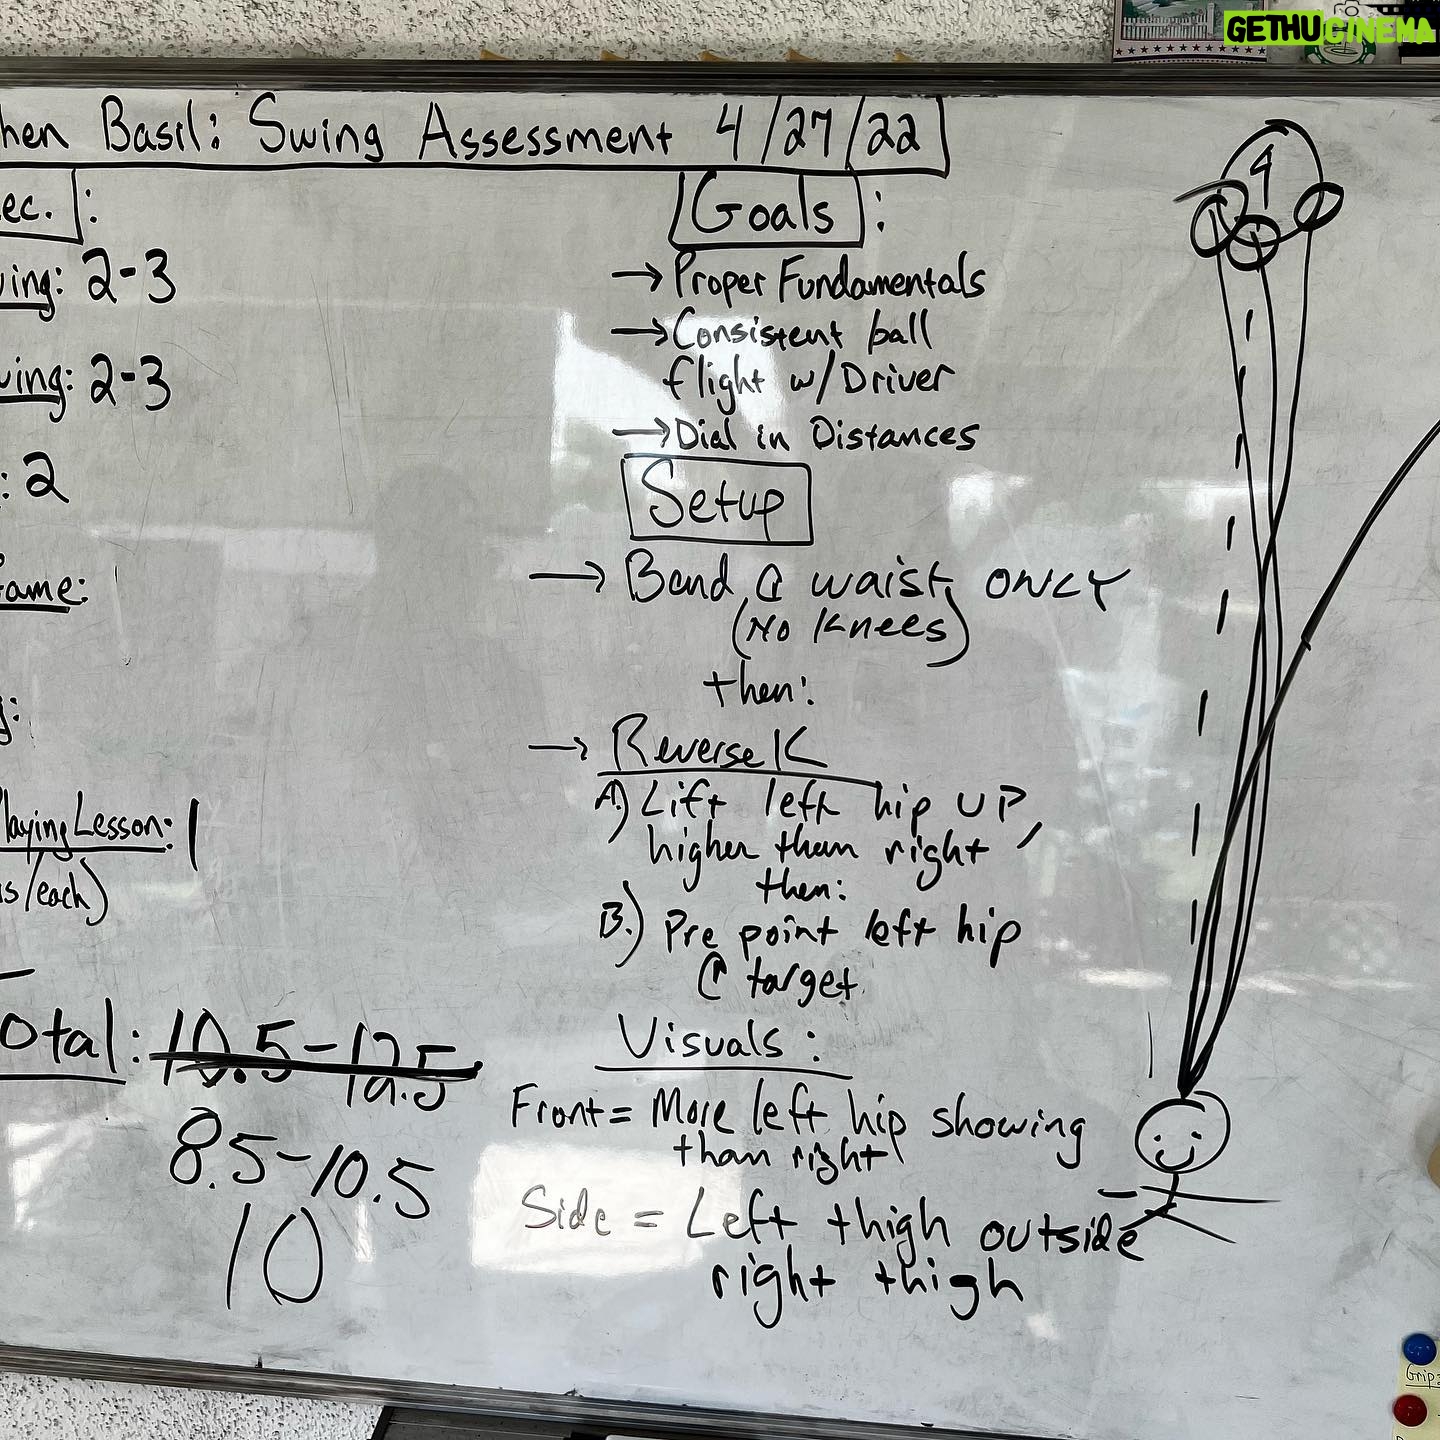 GETHUCINEMA
hen Basil: Swing Assessment 4/27/22
ec.:
wing: 2-3
wing: 2-3
: 2
ame:
g:
laying Lesson: 1
s/each)
otal: 10.5-12.5
8.5-10.5
10
Goals:
→ Proper Fundamentals
→ Consistent ball
flight w/Driver
→ Dial in Distances
Setup
→ Bend @ waist ONLY
(No Knees)
then:
→ Reverse K
A.) Lift left hip UP,
higher than right
then:
B.) Pre point left hip
@ target
Visuals:
Front = More left hip showing
than right
Side = Left thigh outside
right thigh
4
Grip: